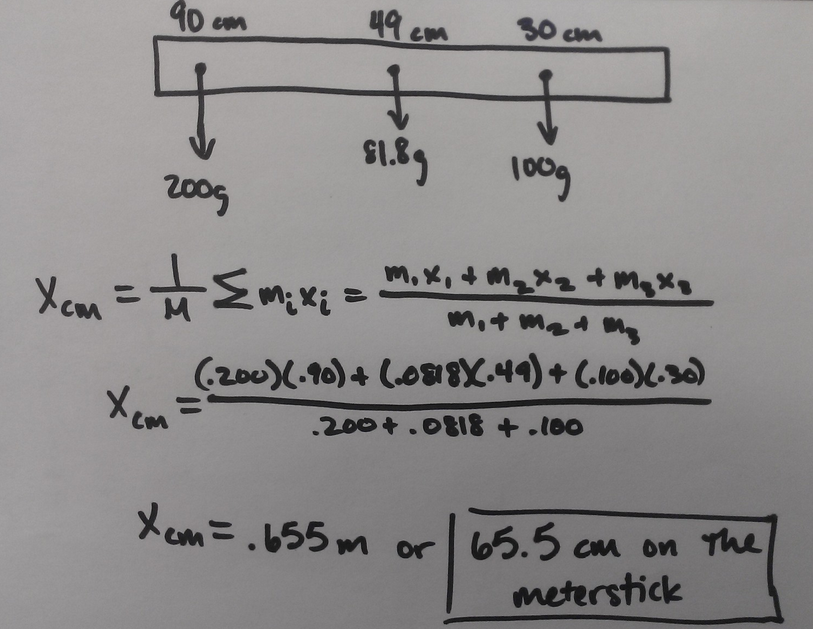 90 cm 49 cm 30 cm
200g 81.8g 100g
Xcm = 1/M Σ mixi = m1x1 + m2x2 + m3x3 / m1 + m2 + m3
Xcm = (.200)(.90) + (.0818)(.49) + (.100)(.30) / .200 + .0818 + .100
Xcm = .655 m or 65.5 cm on the
meterstick